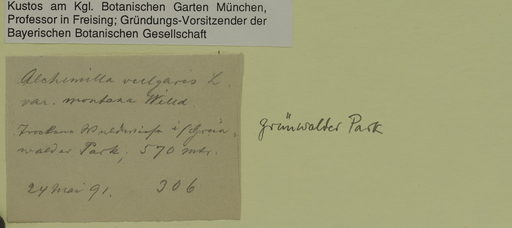 Kustos am Kgl. Botanischen Garten München,
Professor in Freising; Gründungs-Vorsitzender der
Bayerischen Botanischen Gesellschaft
Alchemilla vulgaris L.
var. montana Willd.
Trockene Waldwiese i/Grün-
walder Park, 570 mtr.
24 Mai 91. 306
Grünwalter Park